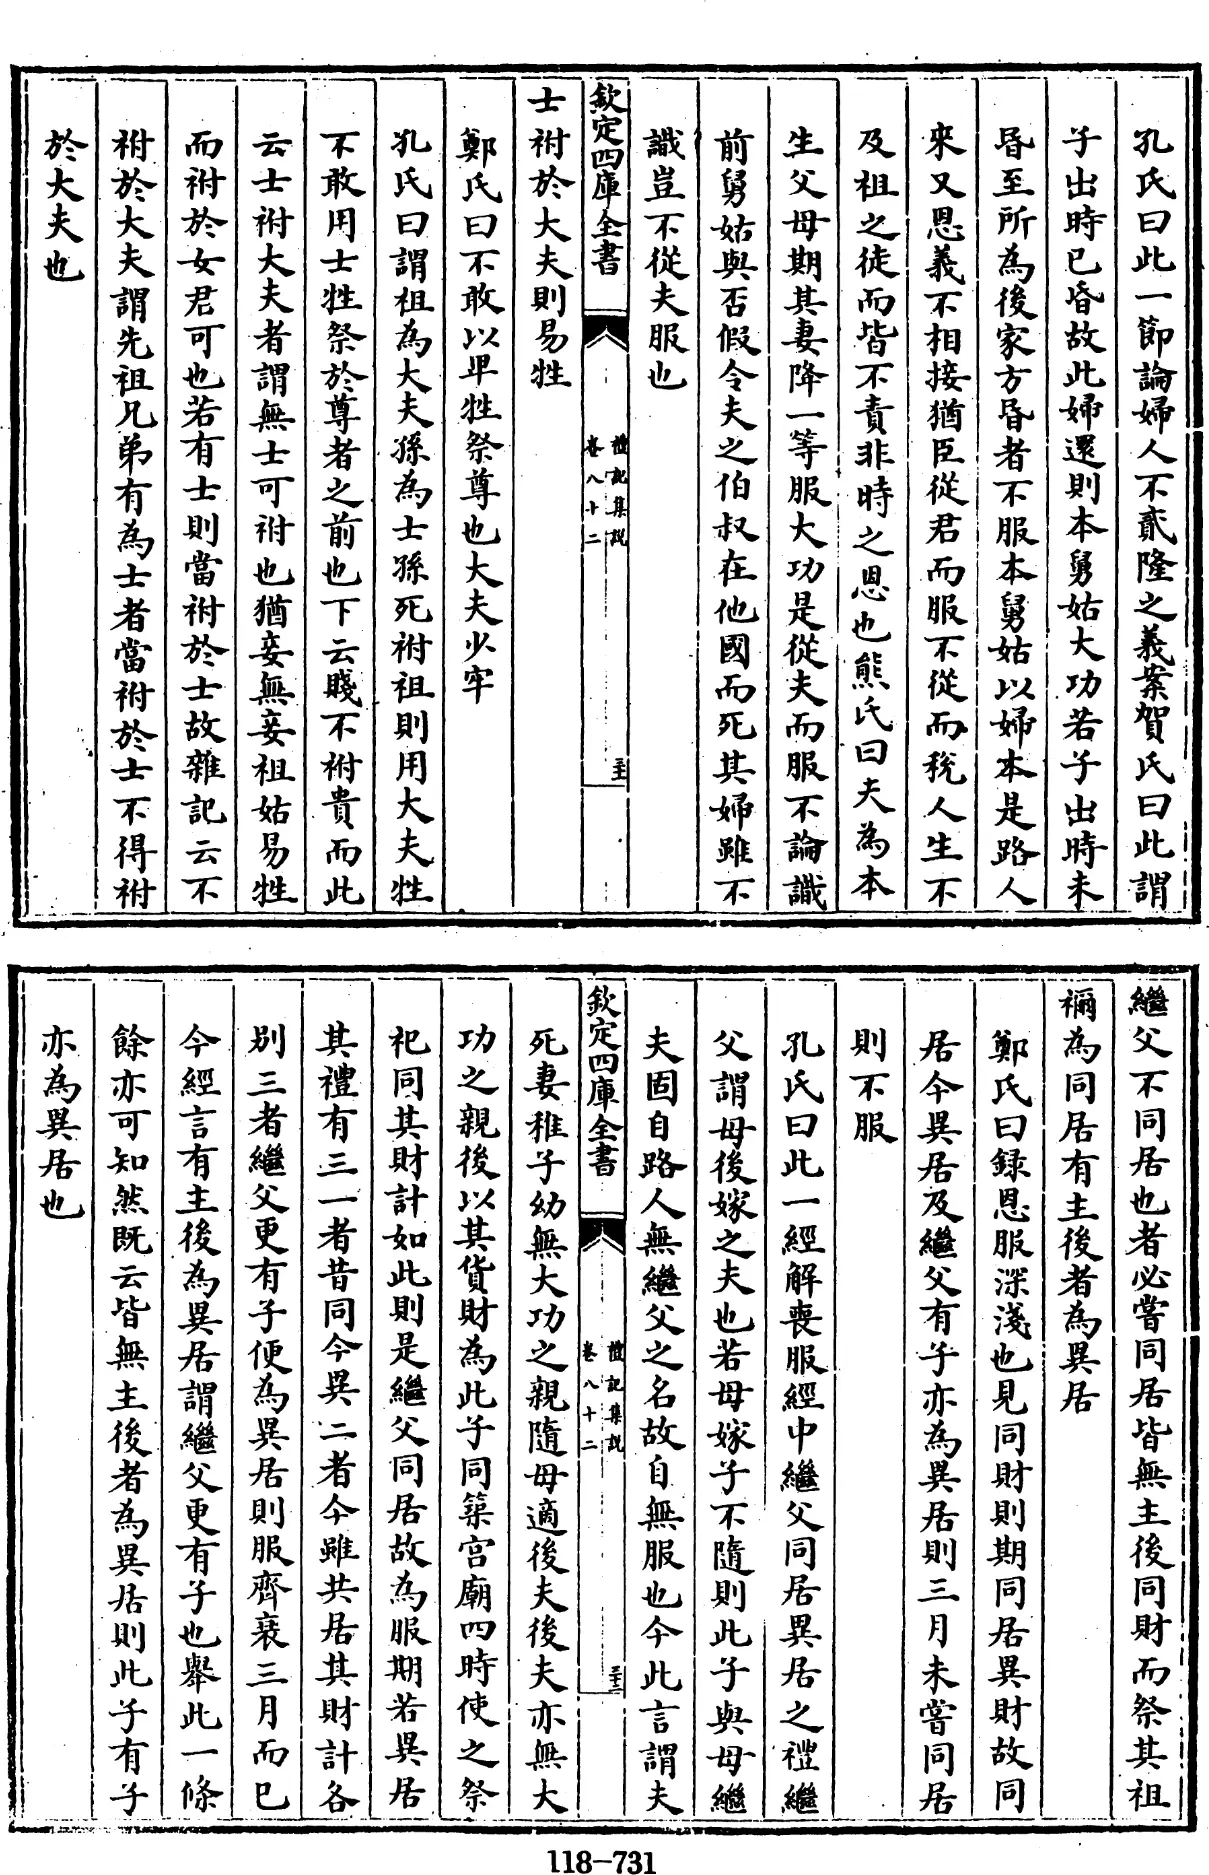 孔氏曰此一節論婦人不貳隆之義案賀氏曰此謂
子出時已昏故此婦還則本舅姑大功若子出時未
昏至所為後家方昏者不服本舅姑以婦本是路人
來又恩義不相接猶臣從君而服不從而稅人生不
及祖之徒而皆不責非時之恩也熊氏曰夫為本
生父母期其妻降一等服大功是從夫而服不論識
前舅姑與否假令夫之伯叔在他國而死其婦雖不
識豈不從夫服也
欽定四庫全書
禮記集說
卷八十二
士祔於大夫則易牲
鄭氏曰不敢以卑牲祭尊也大夫少牢
孔氏曰謂祖為大夫孫為士孫死祔祖則用大夫牲
不敢用士牲祭於尊者之前也下云賤不祔貴而此
云士祔大夫者謂無士可祔也猶妾無妾祖姑易牲
而祔於女君可也若有士則當祔於士故雜記云不
祔於大夫謂先祖兄弟有為士者當祔於士不得祔
於大夫也
繼父不同居也者必嘗同居皆無主後同財而祭其祖
禰為同居有主後者為異居
鄭氏曰録恩服深淺也見同財則期同居異財故同
居今異居及繼父有子亦為異居則三月未嘗同居
則不服
孔氏曰此一經解喪服經中繼父同居異居之禮繼
父謂母後嫁之夫也若母嫁子不隨則此子與母繼
夫固自路人無繼父之名故自無服也今此言謂夫
欽定四庫全書
禮記集說
卷八十二
死妻稚子幼無大功之親隨母適後夫後夫亦無大
功之親後以其貨財為此子同築宮廟四時使之祭
祀同其財計如此則是繼父同居故為服期若異居
其禮有三一者昔同今異二者今雖共居其財計各
別三者繼父更有子便為異居則服齊衰三月而已
今經言有主後為異居謂繼父更有子也舉此一條
餘亦可知然既云皆無主後者為異居則此子有子
亦為異居也
118-731